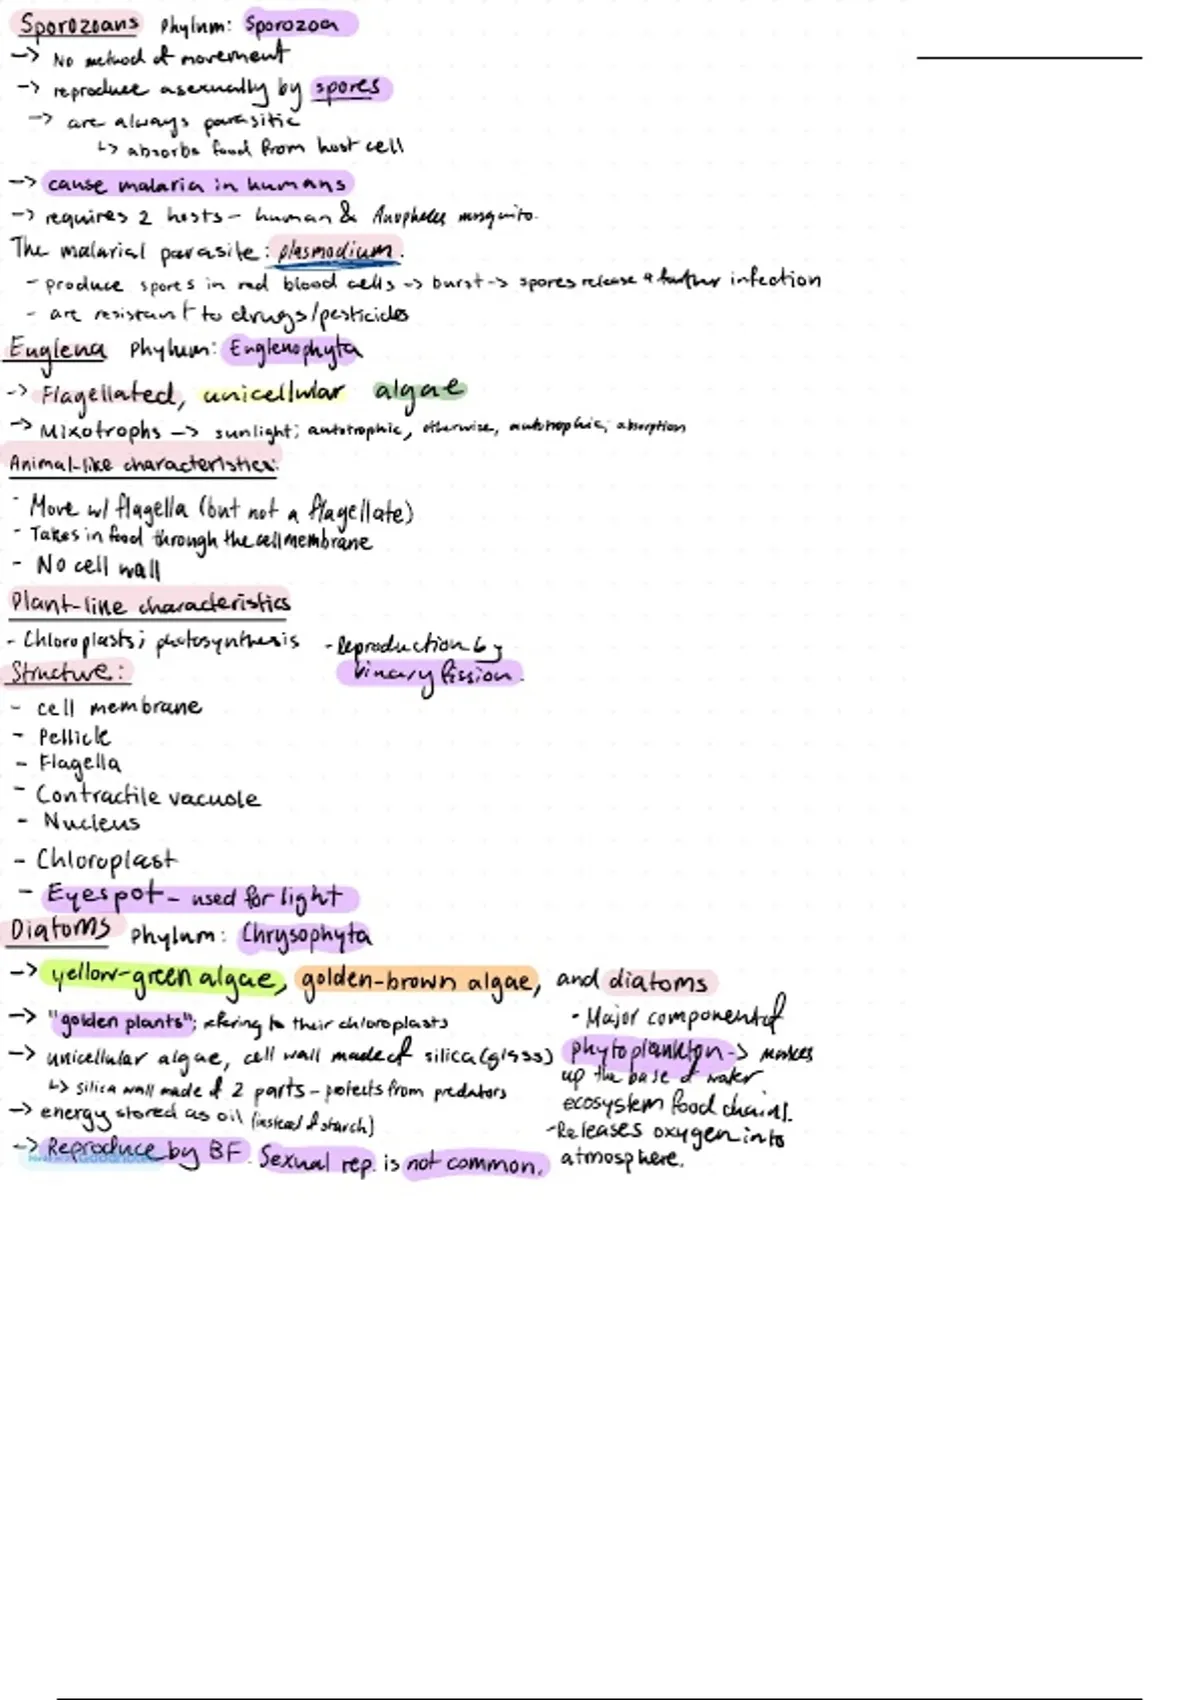 Sporozoans Phylum: Sporozoa
-> No method of movement
-> reproduce asexually by spores
-> are always parasitic
↳ absorbs food from host cell
-> cause malaria in humans
-> requires 2 hosts - human & Anopheles mosquito.
The malarial parasite: plasmodium.
- produce spores in red blood cells -> burst -> spores release & further infection
- are resistant to drugs/pesticides
Euglena Phylum: Euglenophyta
-> Flagellated, unicellular algae
-> Mixotrophs -> sunlight; autotrophic, otherwise, autotrophic; absorption
Animal-like characteristics:
- Move w/ flagella (but not a flagellate)
- Takes in food through the cell membrane
- No cell wall
Plant-like characteristics
- Chloroplasts; photosynthesis
- Reproduction by
binary fission.
Structure:
- cell membrane
- Pellicle
- Flagella
- Contractile vacuole
- Nucleus
- Chloroplast
- Eyespot - used for light
Diatoms Phylum: Chrysophyta
-> yellow-green algae, golden-brown algae, and diatoms
-> "golden plants"; refering to their chloroplasts
-> unicellular algae, cell wall made of silica (glass)
↳ silica wall made of 2 parts - protects from predators
-> energy stored as oil (instead of starch)
-> Reproduce by BF. Sexual rep. is not common.
- Major component of
phytoplankton -> makes
up the base of water
ecosystem food chains.
- Releases oxygen into
atmosphere.